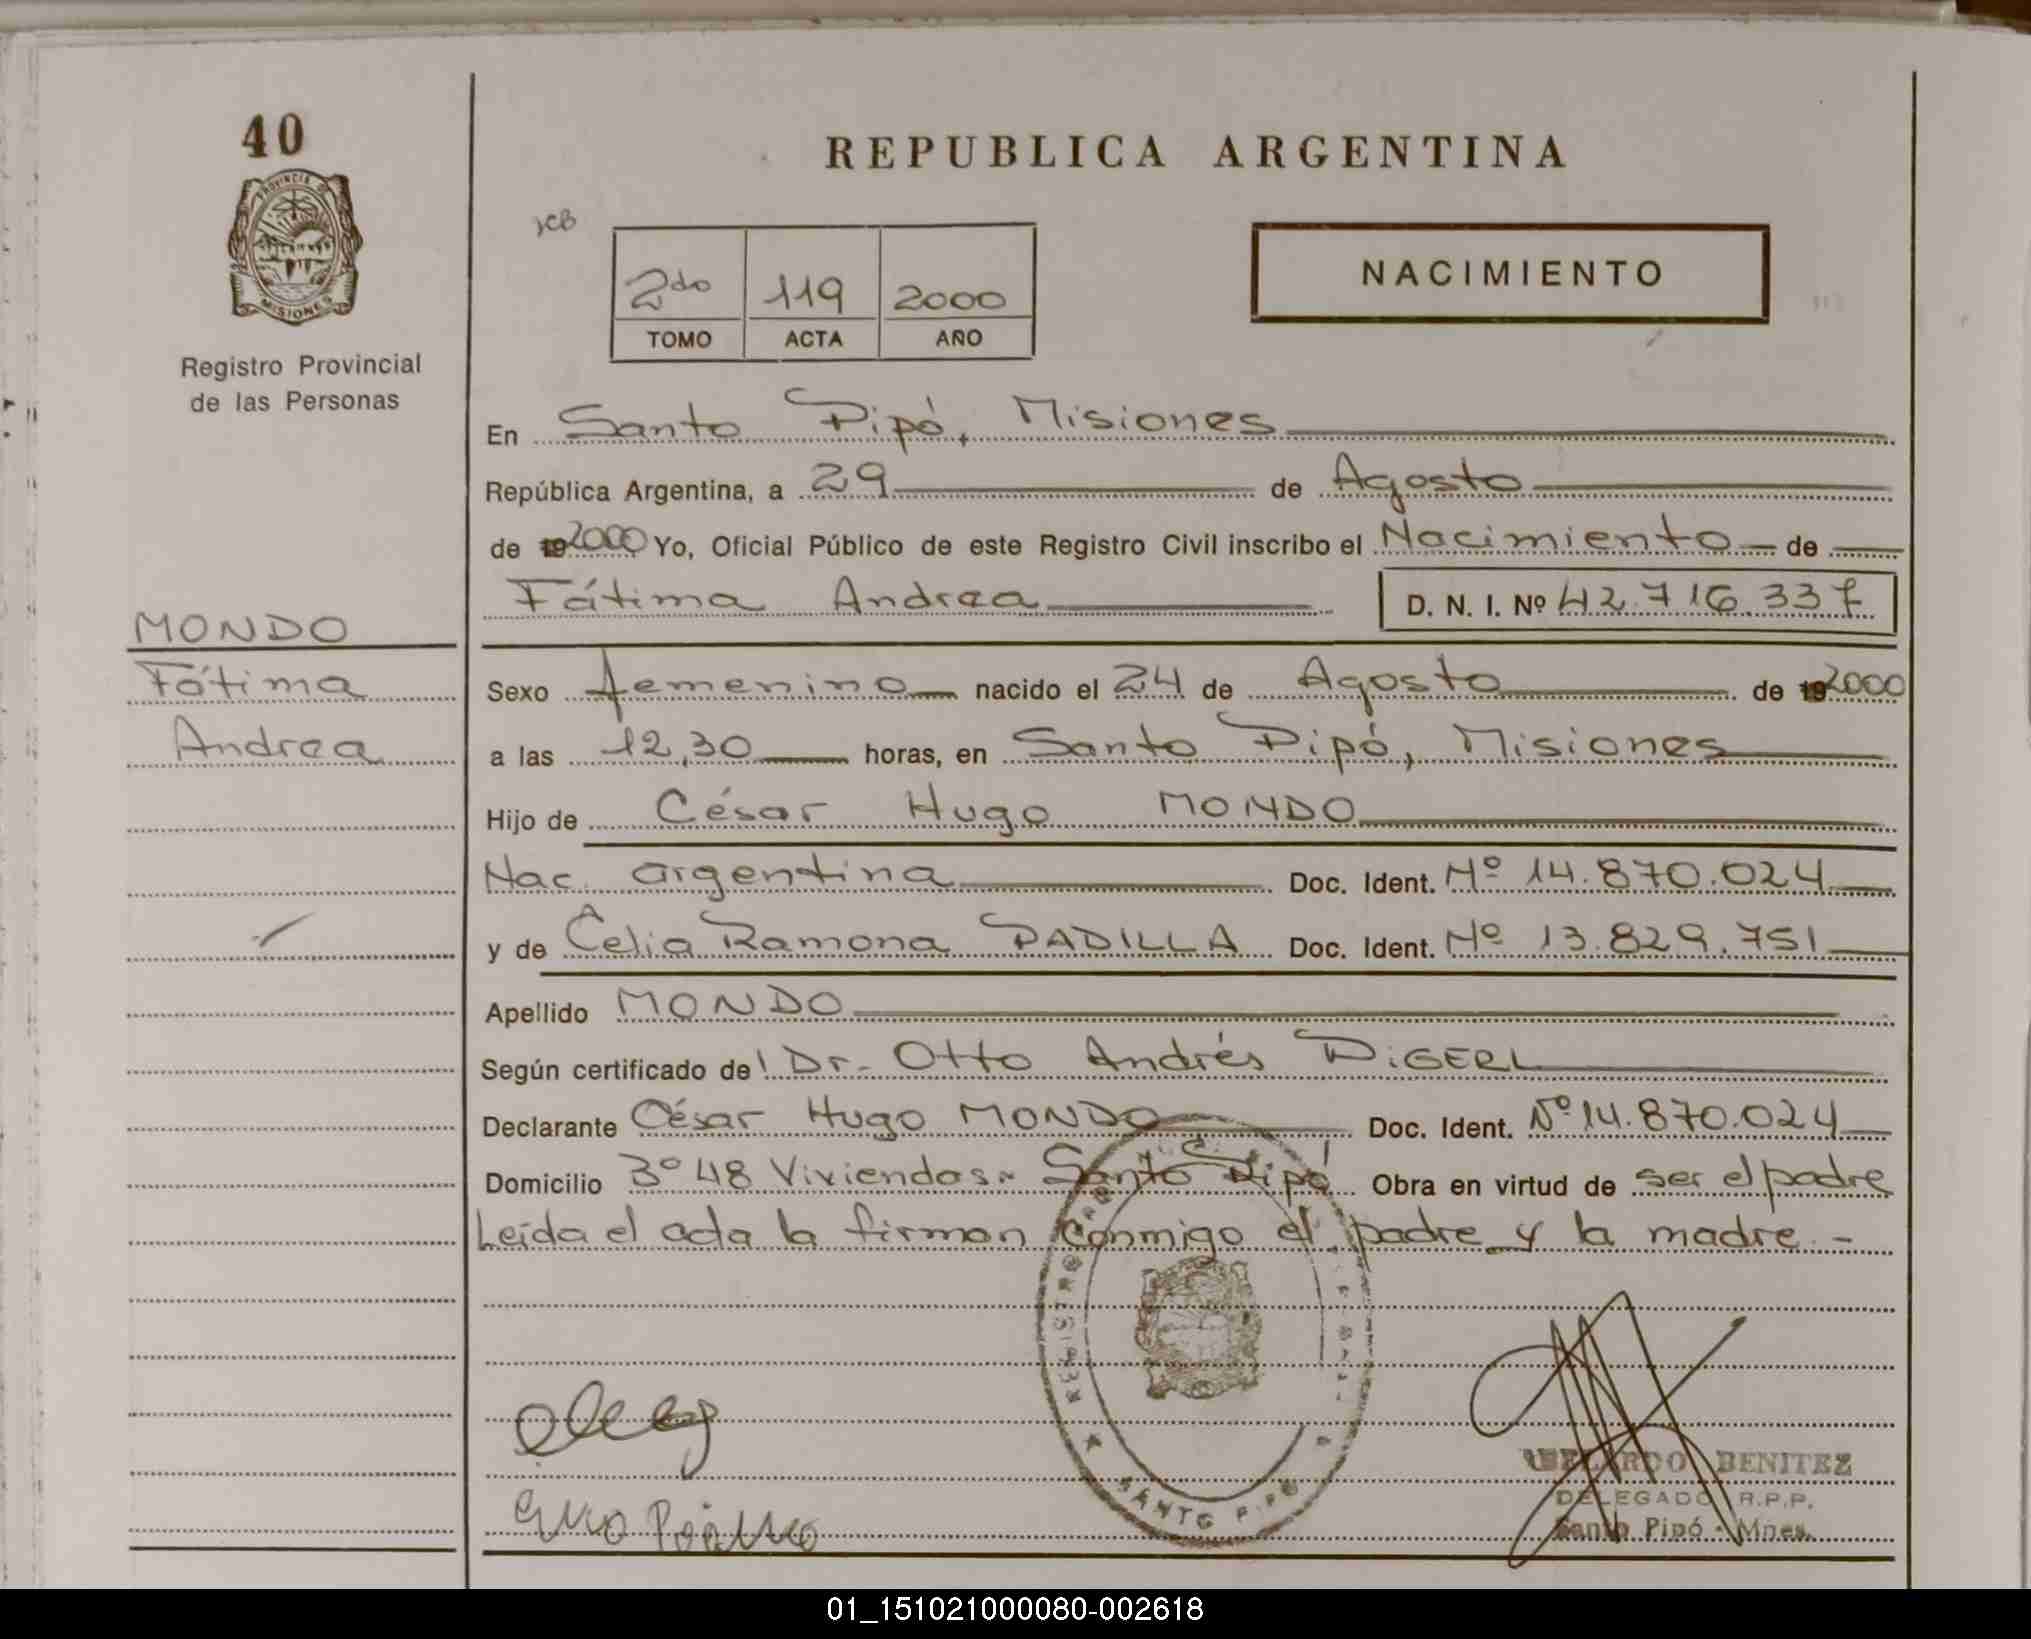 40
REPUBLICA ARGENTINA
PROVINCIA DE
MISIONES
NACIMIENTO
2do 119 2000
TOMO ACTA AÑO
Registro Provincial
de las Personas
En Santo Pipó, Misiones
República Argentina, a 29 de Agosto
de 19 2000 Yo, Oficial Público de este Registro Civil inscribo el Nacimiento de
Fátima Andrea D. N. I. Nº 42.716.337
MONDO
Fátima
Andrea
Sexo femenino nacido el 24 de Agosto de 19 2000
a las 12,30 horas, en Santo Pipó, Misiones
Hijo de César Hugo MONDO
Nac. argentina Doc. Ident. Nº 14.870.024
y de Celia Ramona PADILLA Doc. Ident. Nº 13.829.751
Apellido MONDO
Según certificado del Dr. Otto Andrés PiGERL
Declarante César Hugo MONDO Doc. Ident. Nº 14.870.024
Domicilio 3º 48 Viviendas - Santo Pipó Obra en virtud de ser el padre
Leída el acta la firman conmigo el padre y la madre. -
REGISTRO
SANTO PIPO
ABELARDO BENITEZ
DELEGADO R.P.P.
Santo Pipó - Mnes.
01_151021000080-002618